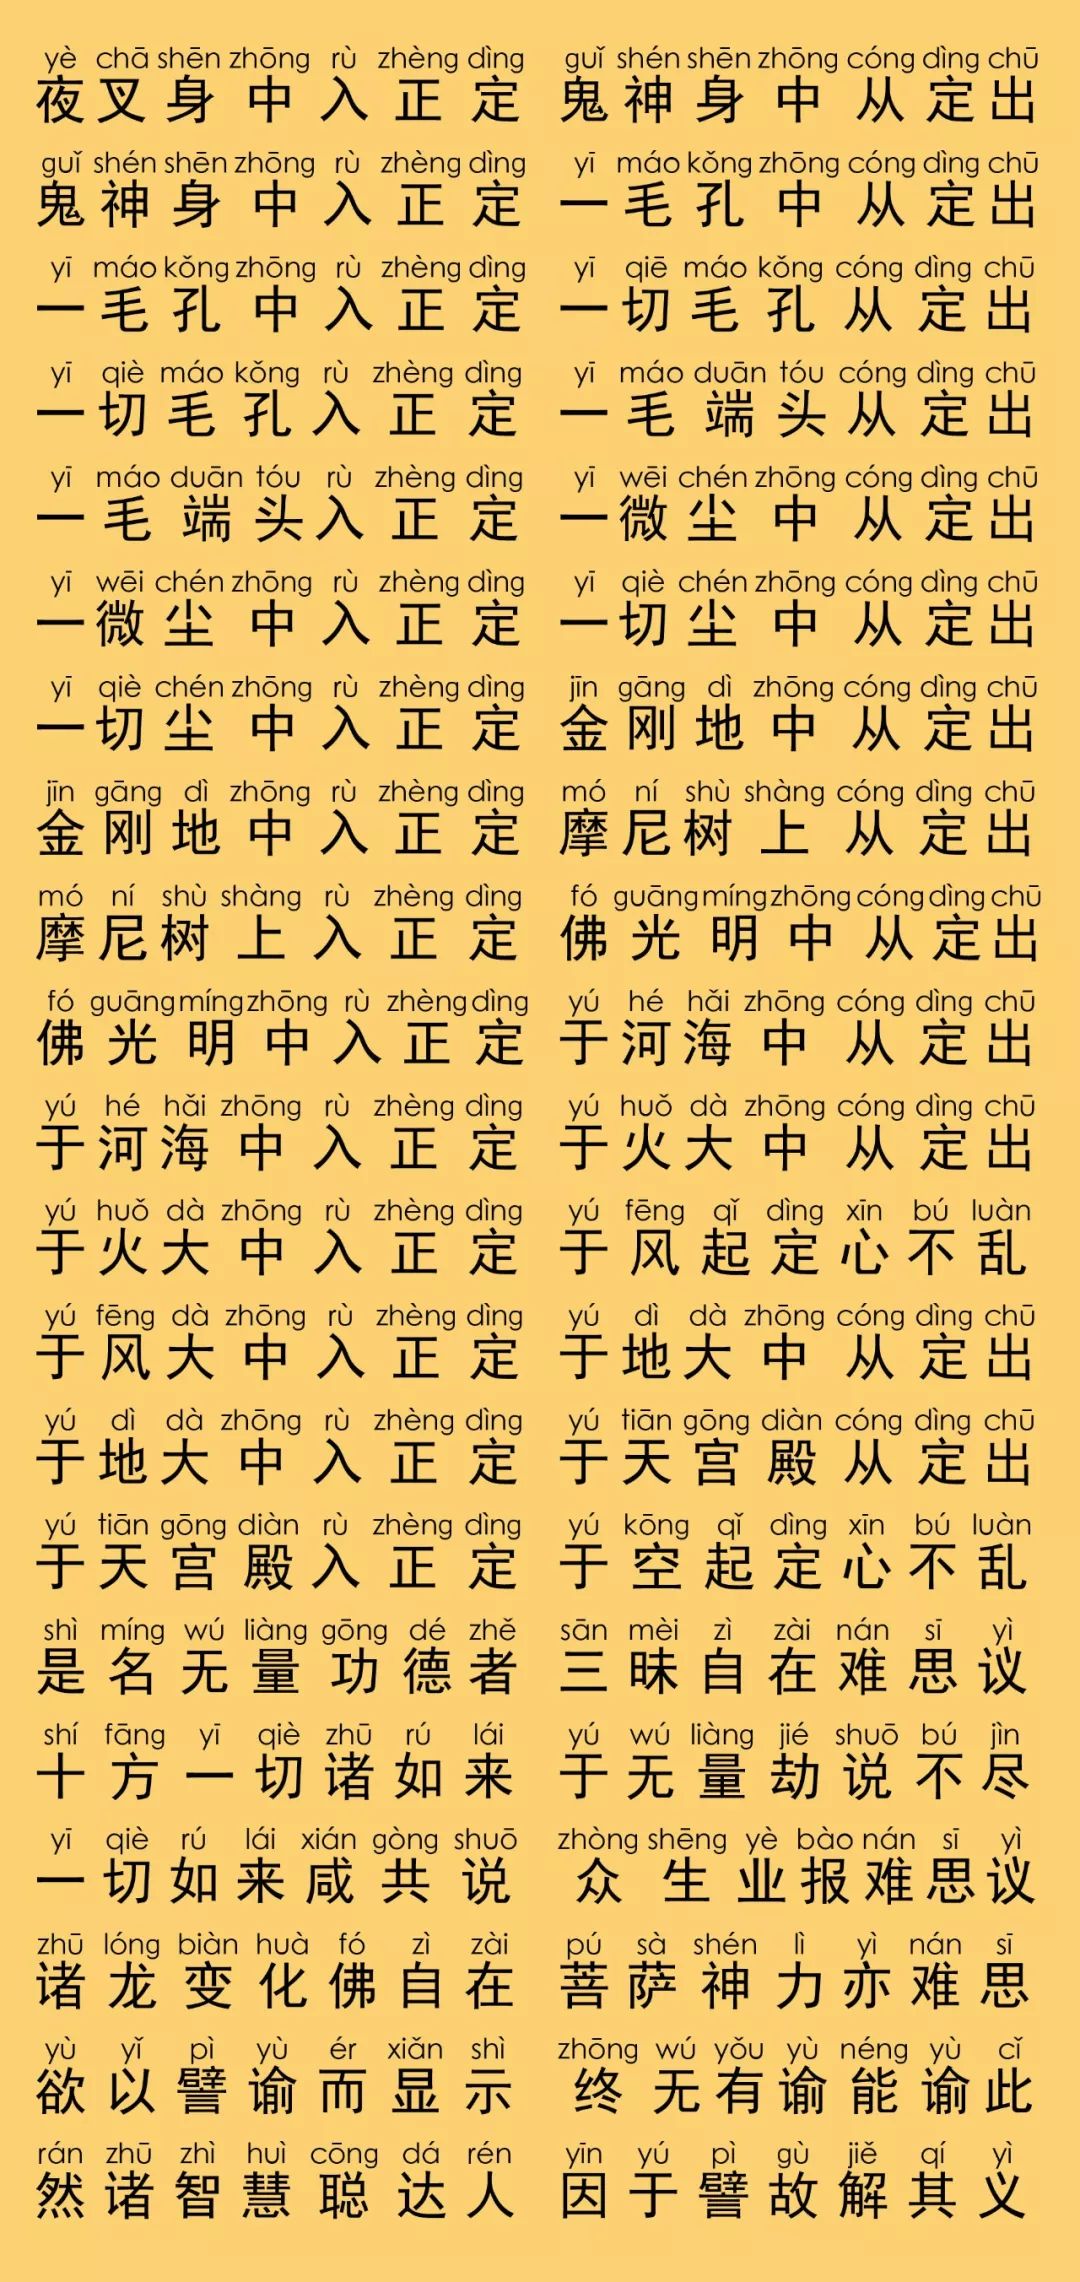 yè chā shēn zhōng rù zhèng dìng guǐ shén shēn zhōng cóng dìng chū
夜叉身中入正定 鬼神身中从定出
guǐ shén shēn zhōng rù zhèng dìng yī máo kǒng zhōng cóng dìng chū
鬼神身中入正定 一毛孔中从定出
yī máo kǒng zhōng rù zhèng dìng yī qiē máo kǒng cóng dìng chū
一毛孔中入正定 一切毛孔从定出
yī qiè máo kǒng rù zhèng dìng yī máo duān tóu cóng dìng chū
一切毛孔入正定 一毛端头从定出
yī máo duān tóu rù zhèng dìng yī wēi chén zhōng cóng dìng chū
一毛端头入正定 一微尘中从定出
yī wēi chén zhōng rù zhèng dìng yī qiè chén zhōng cóng dìng chū
一微尘中入正定 一切尘中从定出
yī qiè chén zhōng rù zhèng dìng jīn gāng dì zhōng cóng dìng chū
一切尘中入正定 金刚地中从定出
jīn gāng dì zhōng rù zhèng dìng mó ní shù shàng cóng dìng chū
金刚地中入正定 摩尼树上从定出
mó ní shù shàng rù zhèng dìng fó guāng míng zhōng cóng dìng chū
摩尼树上入正定 佛光明中从定出
fó guāng míng zhōng rù zhèng dìng yú hé hǎi zhōng cóng dìng chū
佛光明中入正定 于河海中从定出
yú hé hǎi zhōng rù zhèng dìng yú huǒ dà zhōng cóng dìng chū
于河海中入正定 于火大中从定出
yú huǒ dà zhōng rù zhèng dìng yú fēng qǐ dìng xīn bú luàn
于火大中入正定 于风起定心不乱
yú fēng dà zhōng rù zhèng dìng yú dì dà zhōng cóng dìng chū
于风大中入正定 于地大中从定出
yú dì dà zhōng rù zhèng dìng yú tiān gōng diàn cóng dìng chū
于地大中入正定 于天宫殿从定出
yú tiān gōng diàn rù zhèng dìng yú kōng qǐ dìng xīn bú luàn
于天宫殿入正定 于空起定心不乱
shì míng wú liàng gōng dé zhě sān mèi zì zài nán sī yì
是名无量功德者 三昧自在难思议
shí fāng yī qiè zhū rú lái yú wú liàng jié shuō bú jìn
十方一切诸如来 于无量劫说不尽
yī qiè rú lái xián gòng shuō zhòng shēng yè bào nán sī yì
一切如来咸共说 众生业报难思议
zhū lóng biàn huà fó zì zài pú sà shén lì yì nán sī
诸龙变化佛自在 菩萨神力亦难思
yù yǐ pì yù ér xiǎn shì zhōng wú yǒu yù néng yù cǐ
欲以譬谕而显示 终无有谕能谕此
rán zhū zhì huì cōng dá rén yīn yú pì gù jiě qí yì
然诸智慧聪达人 因于譬故解其义